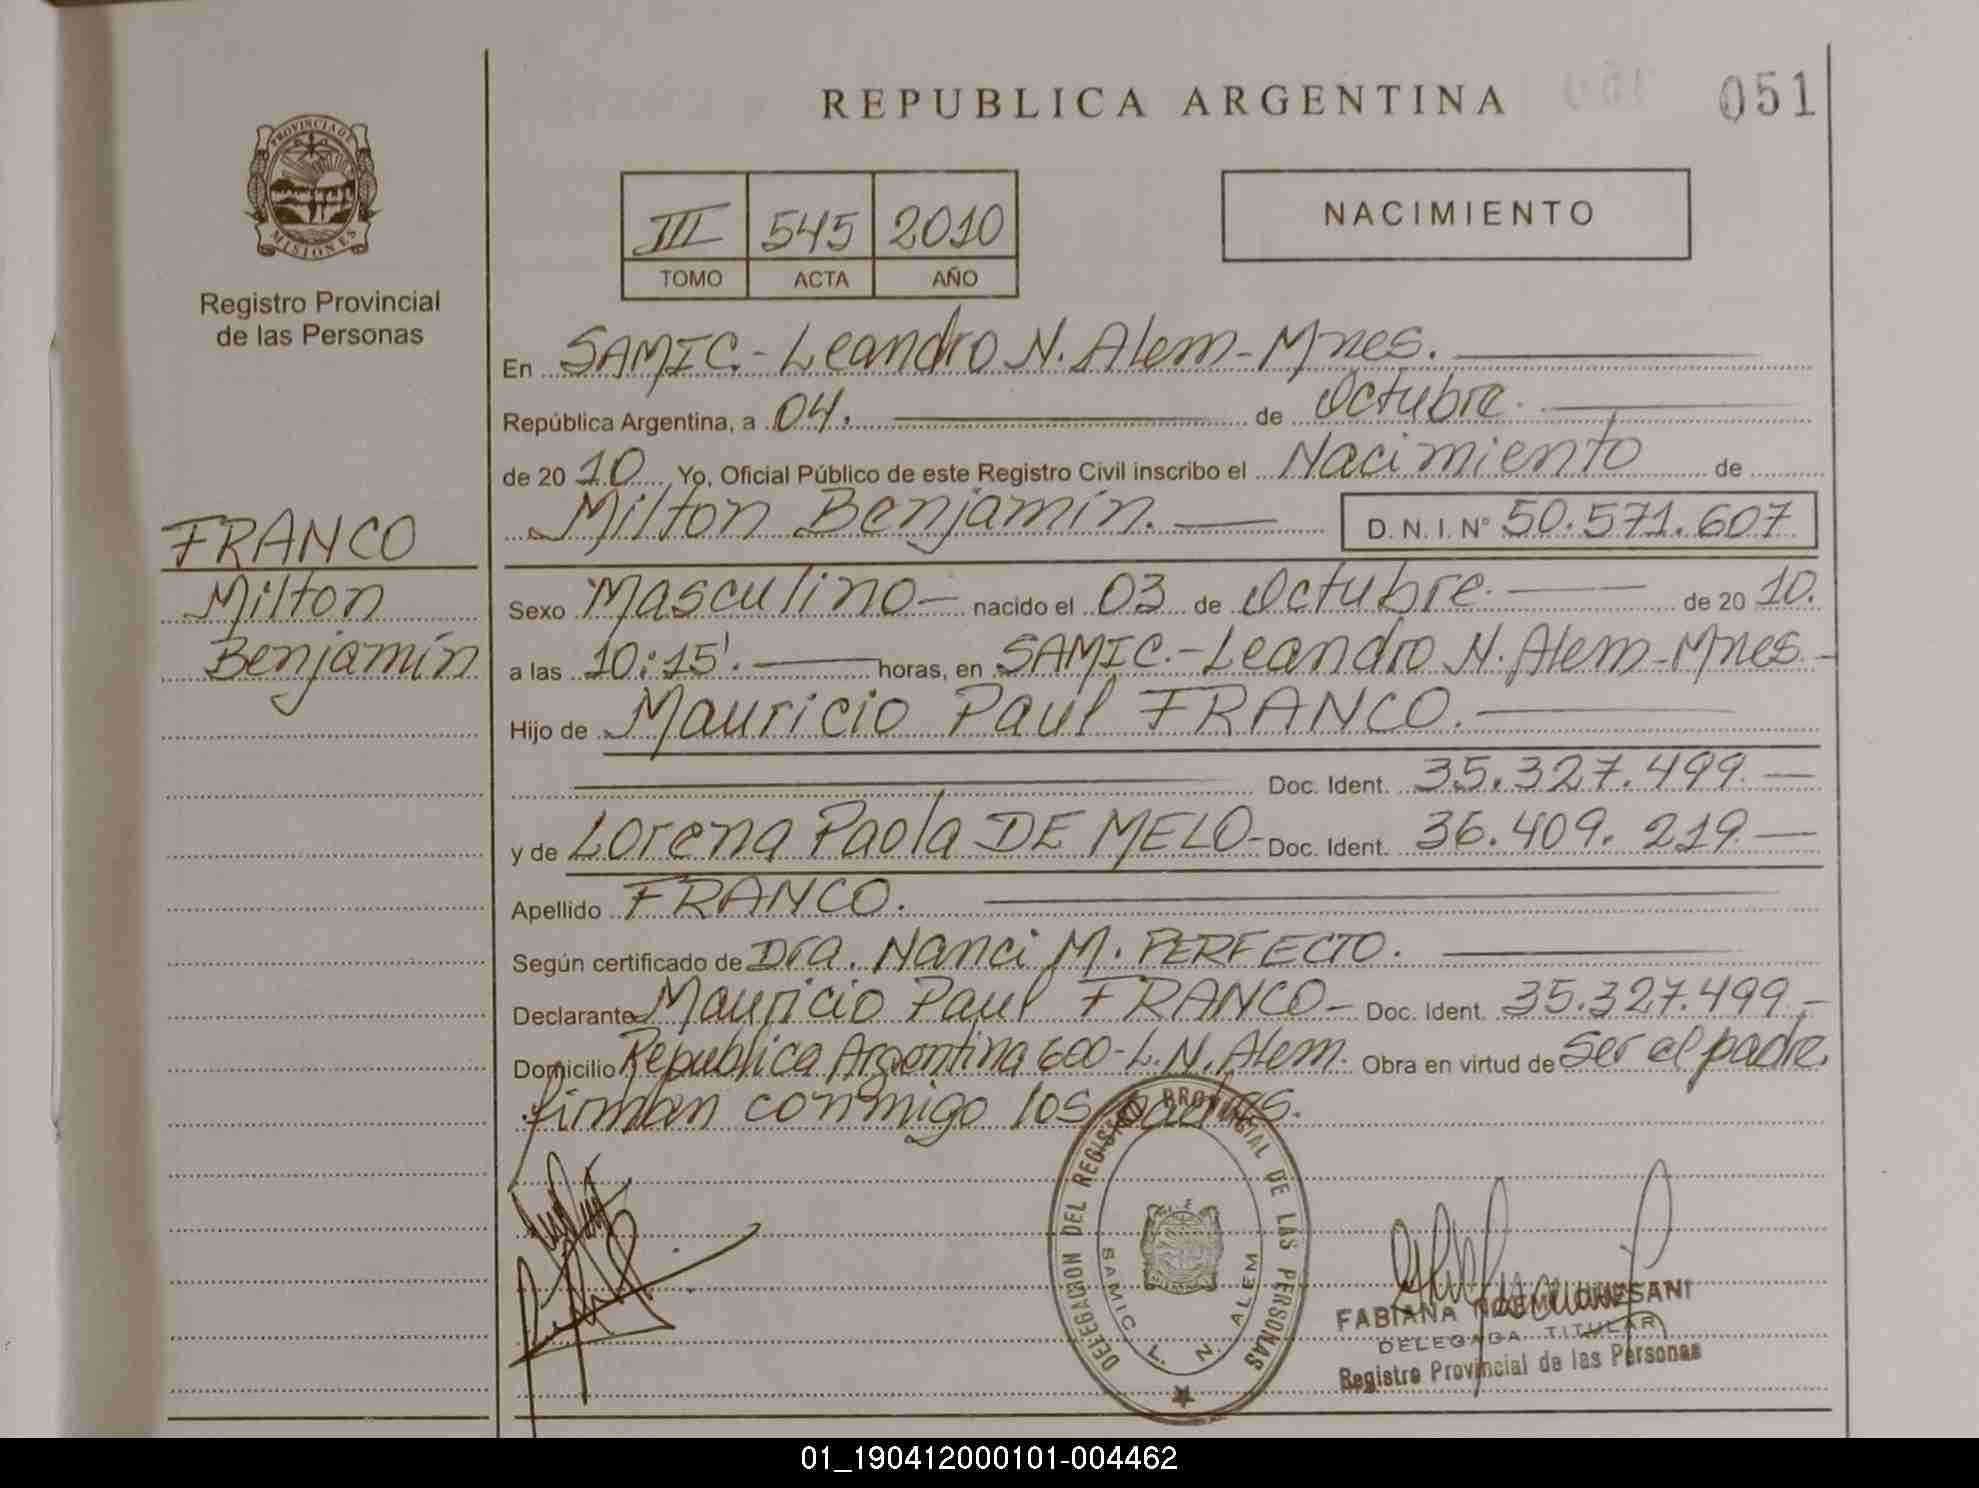 REPUBLICA ARGENTINA
051
PROVINCIA DE MISIONES
Registro Provincial
de las Personas
III 545 2010
TOMO ACTA AÑO
NACIMIENTO
En SAMIC.- Leandro N. Alem - Mnes.
República Argentina, a 04. de Octubre.
de 20 10 Yo, Oficial Público de este Registro Civil inscribo el Nacimiento de
Milton Benjamín. D. N. I. N° 50.571.607
FRANCO
Milton
Benjamín
Sexo Masculino - nacido el 03 de Octubre. de 20 10.
a las 10:15'. horas, en SAMIC.- Leandro N. Alem - Mnes. -
Hijo de Mauricio Paul FRANCO.
Doc. Ident. 35.327.499. -
y de Lorena Paola DE MELO - Doc. Ident. 36.409.219. -
Apellido FRANCO.
Según certificado de Dra. Nanci M. PERFECTO.
Declarante Mauricio Paul FRANCO - Doc. Ident. 35.327.499. -
Domicilio Republica Argentina 600 - L. N. Alem. Obra en virtud de Ser el padre.
firman conmigo los padres.
DELEGACION DEL REGISTRO PROVINCIAL DE LAS PERSONAS
SAMIC L. N. ALEM
FABIANA
DELEGADA TITULAR
Registro Provincial de las Personas
01_190412000101-004462